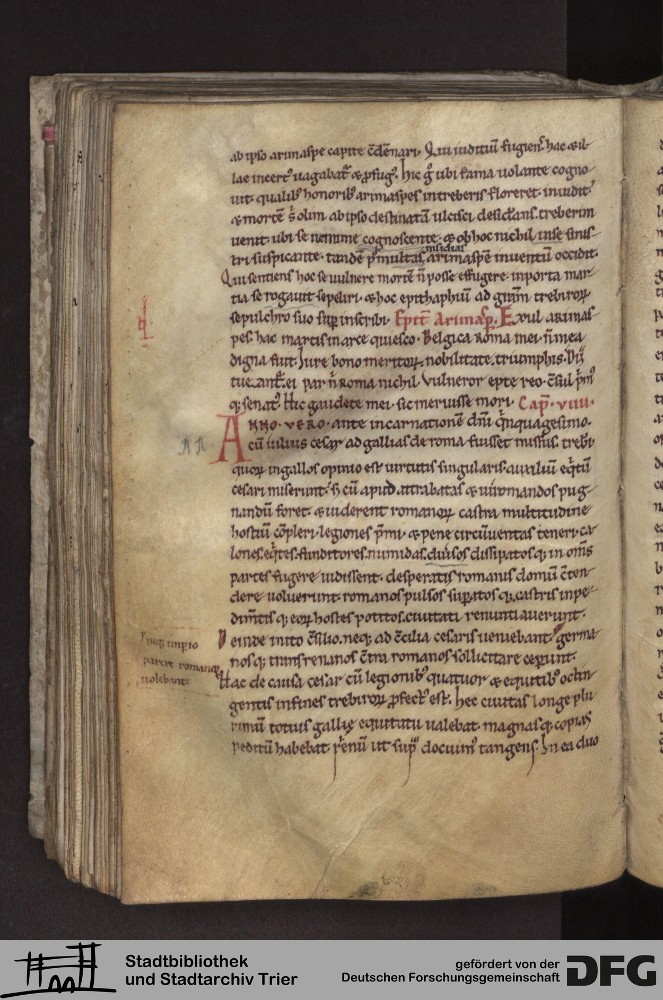 ab ipso arimaspe capite cōdēnari. Qui iuditiū fugiens hac & il-
lac incert᷒ uagabat᷒ & ꝓfug᷒. hic g̊ ubi fama uolante cogno-
uit. qualib᷒ honorib᷒ arimaspes in treberis floreret. inuidit᷒
& mortē s̄ olim ab ipso destinatā ulcisci desid̄ans. treberim
uenit. ubi se nemine cognoscente. & ob hoc nichil inse sinis-
tri suspicante. tandē p̄ multas insidias arimaspē inuentū occidit.
Qui sentiens hoc se uulnere mortē n̄ posse effugere. in porta mar-
tia se rogauit sepeliri. & hoc epithaphiū ad gl̄iam trebiroꝝ
sepulchro suo sup̄ inscribi. Epit̄ Arimasp̄. Exul arimas-
pes. hac martis in arce quiesco. Belgica roma mei. n̄ mea
digna fuit. Iure bono meritoꝝ. nobilitate. triumphis.
ei par n̄ Roma nichil. Vulneror
q; senat᷒. Hic gaudete mei. sic meruisse mori. Cap̄. VIIII.
ANNO. VERO. ante incarnationē dn̄i q̄nquagesimo.
cū iulius cesar ad gallias de roma fuisset missus. trebi-
quoꝝ in gallos opinio est uirtutis singularis. auxiliū eq̄tū
cesari miserunt. s; cū apud. atrabatas & uiromandos pug-
nandū foret. & uiderent romanoꝝ castra multitudine
hostiū cōpleri. legiones p̄mi. & pene circūuentas teneri. ca-
lones. eq̄tes. funditores. numidas. diuisos dissipatosq; in om̄s
partes fugere uidissent. desperatis romanis domū cōten-
dere uoluerunt. romanos pulsos sup̄atosq;. castris inpe-
dim̄tisq; eoꝝ hostes potitos. ciuitati renuntiauerunt.
Deinde inito c̄silio. neq; ad c̄cilia cesaris ueniebant. germa-
nosq; transrenanos c̄tra romanos sollicitare ceperunt.
Hac de causa cesar cū legionib᷒ quatuor & equitib᷒ octin-
gentis in fines trebiroꝝ ꝓfect᷒ est. Hec ciuitas longe plu-
rimū totius gallię equitatu ualebat. magnasq; copias
peditū habebat. renū ut sup̄ docuim᷒ tangens. In ea duo
neq; impio
parere romanoꝝ
uolebant.
Stadtbibliothek
und Stadtarchiv Trier
gefördert von der
Deutschen Forschungsgemeinschaft
DFG